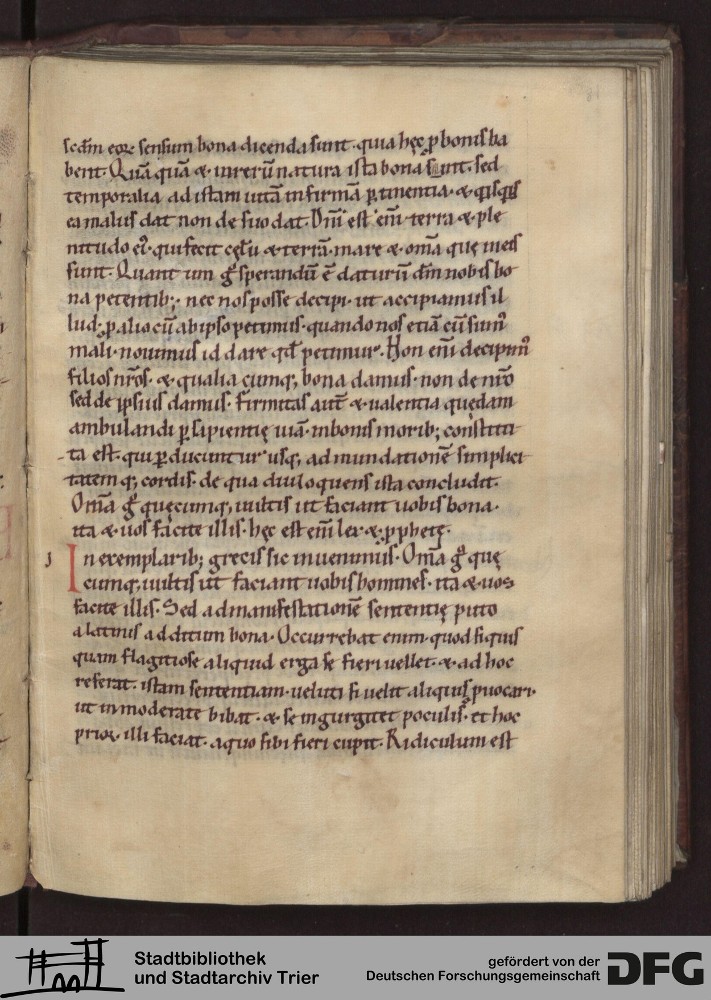 scdm eoꝝ sensum bona dicenda sunt. quia hęc ꝓ bonis ha
bent. Quā quā & in rerū natura ista bona sunt. sed
temporalia ad istam uitā infirmā ꝑtinentia. & q̇sq̇s
ea malus dat non de suo dat. Dn̄i est eni̅ terra & ple
nitudo ei᾿. qui fecit cęlū & terrā. mare & om̄a quę in eis
sunt. Quantum g̊ sperandū ē daturū dm̄ nobis bo
na petentib;. nec nos posse decipi. ut accipiamus il
lud ꝓ alio cū ab ipso petimus. quando nos etiā cū sim᾿
mali. nouimus id dare qđ petimur. Non eni̅ decipim᾿
filios nr̄os. & qualia cumq, bona damus. non de nr̄o
sed de ipsius damus. Firmitas aut̄ & ualentia quędam
ambulandi ꝑ sapientię uiā. in bonis morib; constitu
ta est. qui ꝑducuntur usq, ad mundationē simplici
tatem q; cordis. de qua diu loquens ista concludit.
Om̄a g̊ quęcumq, uultis ut faciant uobis bona.
ita & uos facite illis. hęc est eni̅ lex & ꝓphetę.
In exemplarib; grecis sic inuenimus. Om̄a g̊ quę
cumq, uultis ut faciant uobis homines. ita & uos
facite illis. Sed ad manifestationē sententię puto
a latinis additum bona. Occurrebat enim quod si quis
quam flagitiose aliquid erga se fieri uellet. & ad hoc
referat istam sententiam. ueluti si uelit aliquis ꝓuocari
ut inmoderate bibat. & se ingurgitet poculis. et hoc
prior illi faciat. a quo sibi fieri cupit. Ridiculum est
Stadtbibliothek
und Stadtarchiv Trier
gefördert von der
Deutschen Forschungsgemeinschaft
DFG